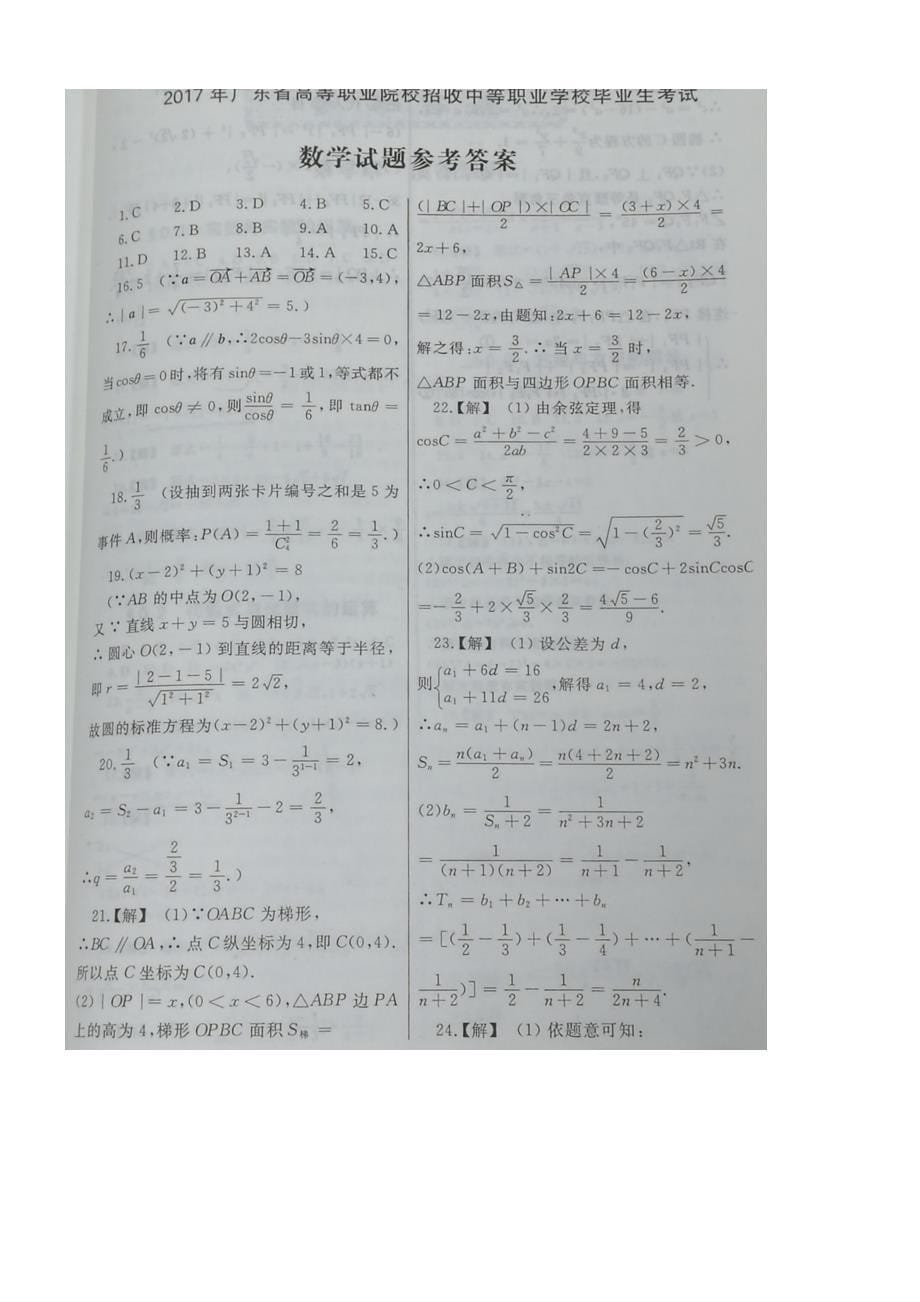 2017 年广东省高等职业院校招收中等职业学校毕业生考试
数学试题参考答案
1. C 2. D 3. D 4. B 5. C
6. C 7. B 8. B 9. A 10. A
11. D 12. B 13. A 14. A 15. C
16. 5 (∵a = OA + AB = OB = (−3,4),
∴|a| = √((−3)² + 4²) = 5.)
17. 1/6 (∵a // b,∴2cosθ−3sinθ×4 = 0,
当cosθ = 0时,将有 sinθ =−1 或 1,等式都不
成立,即 cosθ ≠ 0,则 sinθ/cosθ = 1/6,即 tanθ =
1/6.)
18. 1/3 (设抽到两张卡片编号之和是 5 为
事件 A,则概率:P(A) = (1+1)/C₄² = 2/6 = 1/3.)
19. (x−2)² + (y+1)² = 8
(∵AB 的中点为 O(2,−1),
又∵直线 x+y = 5 与圆相切,
∴圆心 O(2,−1) 到直线的距离等于半径,
即 r = |2−1−5|/√(1²+1²) = 2√2,
故圆的标准方程为(x−2)²+(y+1)² = 8.)
20. 1/3 (∵a₁ = S₁ = 3 − 1/3¹⁻¹ = 2,
a₂ = S₂ − a₁ = 3 − 1/3²⁻¹ − 2 = 2/3,
∴q = a₂/a₁ = (2/3)/2 = 1/3.)
21.【解】 (1)∵OABC 为梯形,
∴BC // OA,∴ 点 C 纵坐标为 4,即 C(0,4).
所以点 C 坐标为 C(0,4).
(2)|OP| = x,(0 < x < 6),△ABP 边 PA
上的高为 4,梯形 OPBC 面积 S梯 =
(|BC|+|OP|)×|OC|/2 = (3+x)×4/2 =
2x+6,
△ABP 面积S△ = |AP|×4/2 = (6−x)×4/2
= 12−2x,由题知:2x+6 = 12−2x,
解之得:x = 3/2.∴ 当 x = 3/2 时,
△ABP 面积与四边形 OPBC 面积相等.
22.【解】 (1) 由余弦定理,得
cosC = (a²+b²−c²)/2ab = (4+9−5)/(2×2×3) = 2/3 > 0,
∴0 < C < π/2,
∴sinC = √(1−cos²C) = √(1−(2/3)²) = √5/3.
(2)cos(A+B)+sin2C =−cosC+2sinCcosC
=−2/3+2×√5/3×2/3 = (4√5−6)/9.
23.【解】 (1) 设公差为 d,
则{a₁+6d = 16
a₁+11d = 26,解得 a₁ = 4,d = 2,
∴aₙ = a₁+(n−1)d = 2n+2,
Sₙ = n(a₁+aₙ)/2 = n(4+2n+2)/2 = n²+3n.
(2)bₙ = 1/(Sₙ+2) = 1/(n²+3n+2)
= 1/((n+1)(n+2)) = 1/(n+1) − 1/(n+2),
∴Tₙ = b₁+b₂+⋯+bₙ
= [(1/2−1/3)+(1/3−1/4)+⋯+(1/(n+1)−
1/(n+2))] = 1/2 − 1/(n+2) = n/(2n+4).
24.【解】 (1) 依题意可知: